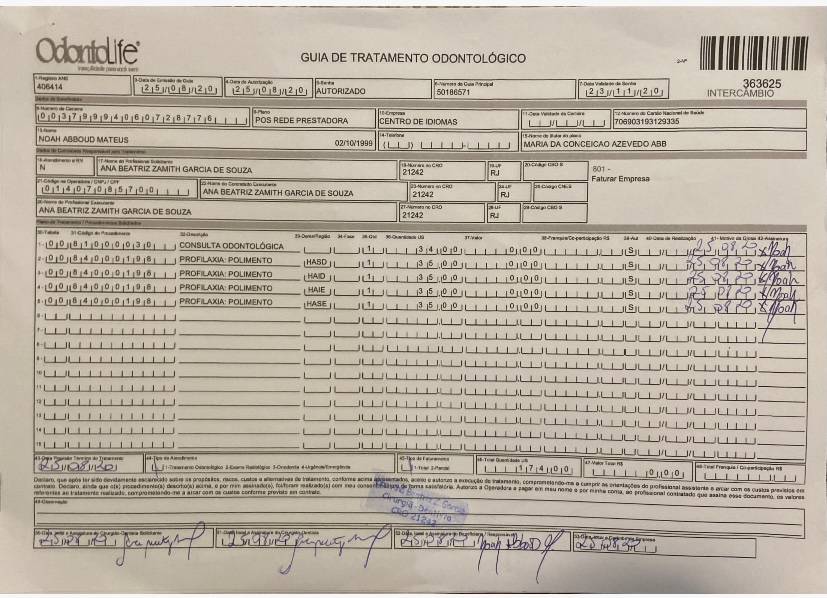 OdontoLife
GUIA DE TRATAMENTO ODONTOLÓGICO
2-Nº
363625
INTERCÂMBIO
1-Registro ANS
406414
3-Data de Emissão da Guia
25/08/20
4-Data de Autorização
25/08/20
5-Senha
AUTORIZADO
6-Número da Guia Principal
50186571
7-Data Validade da Senha
23/11/20
Dados do Beneficiário
8-Número da Carteira
9-Plano
POS REDE PRESTADORA
10-Empresa
CENTRO DE IDIOMAS
11-Data Validade da Carteira
12-Número do Cartão Nacional de Saúde
706903193129335
13-Nome
NOAH ABBOUD MATEUS
02/10/1999
14-Telefone
15-Nome do titular do plano
MARIA DA CONCEICAO AZEVEDO ABB
16-Atendimento a RN
N
17-Nome do Profissional Solicitante
ANA BEATRIZ ZAMITH GARCIA DE SOUZA
18-Número no CRO
21242
19-UF
RJ
20-Código CBO S
801 -
Faturar Empresa
21-Código na Operadora / CNPJ / CPF
01407085700
22-Nome do Contratado Executante
ANA BEATRIZ ZAMITH GARCIA DE SOUZA
23-Número no CRO
21242
24-UF
RJ
25-Código CNES
26-Nome do Profissional Executante
ANA BEATRIZ ZAMITH GARCIA DE SOUZA
27-Número no CRO
21242
28-UF
RJ
29-Código CBO S
Plano de Tratamento / Procedimentos Solicitados
30-Tabela 31-Código do Procedimento 32-Descrição 33-Dente/Região 34-Face 35-Qtd 36-Quantidade US 37-Valor 38-Franquia/Co-participação R$ 39-Aut 40-Data de Realização 41-Motivo da Glosa 42-Assinatura
1- 00 81000030 CONSULTA ODONTOLÓGICA 1 34 00 0 00 S 25 08 20 x Noah
2- 00 84000198 PROFILAXIA: POLIMENTO HASD 1 35 00 0 00 S 25 08 20 x Noah
3- 00 84000198 PROFILAXIA: POLIMENTO HAID 1 35 00 0 00 S 25 08 20 x Noah
4- 00 84000198 PROFILAXIA: POLIMENTO HAIE 1 35 00 0 00 S 25 08 20 x Noah
5- 00 84000198 PROFILAXIA: POLIMENTO HASE 1 35 00 0 00 S 25 08 20 x Noah
6-
7-
8-
9-
10
11
12
13
14
15
43-Data Previsão Término do Tratamento
25/08/20
44-Tipo de Atendimento
1-Tratamento Odontológico 2-Exame Radiológico 3-Ortodontia 4-Urgência/Emergência
45-Tipo de Faturamento
1-Total 2-Parcial
46-Total Quantidade US
174 00
47-Valor Total R$
0 00
48-Total Franquia / Co-participação R$
Declaro, que após ter sido devidamente esclarecido sobre os propósitos, riscos, custos e alternativas de tratamento, conforme acima apresentados, aceito e autorizo a execução do tratamento, comprometendo-me a cumprir as orientações do profissional assistente e arcar com os custos previstos em
contrato. Declaro, ainda que o(s) procedimento(s) descrito(s) acima, e por mim assinado(s), foi/foram realizado(s) com meu consentimento e de forma satisfatória. Autorizo a Operadora a pagar em meu nome e por minha conta, ao profissional contratado que assina esse documento, os valores
referentes ao tratamento realizado, comprometendo-me a arcar com os custos conforme previsto em contrato.
Cirurgiã-Dentista
CRO 21242
49-Observação